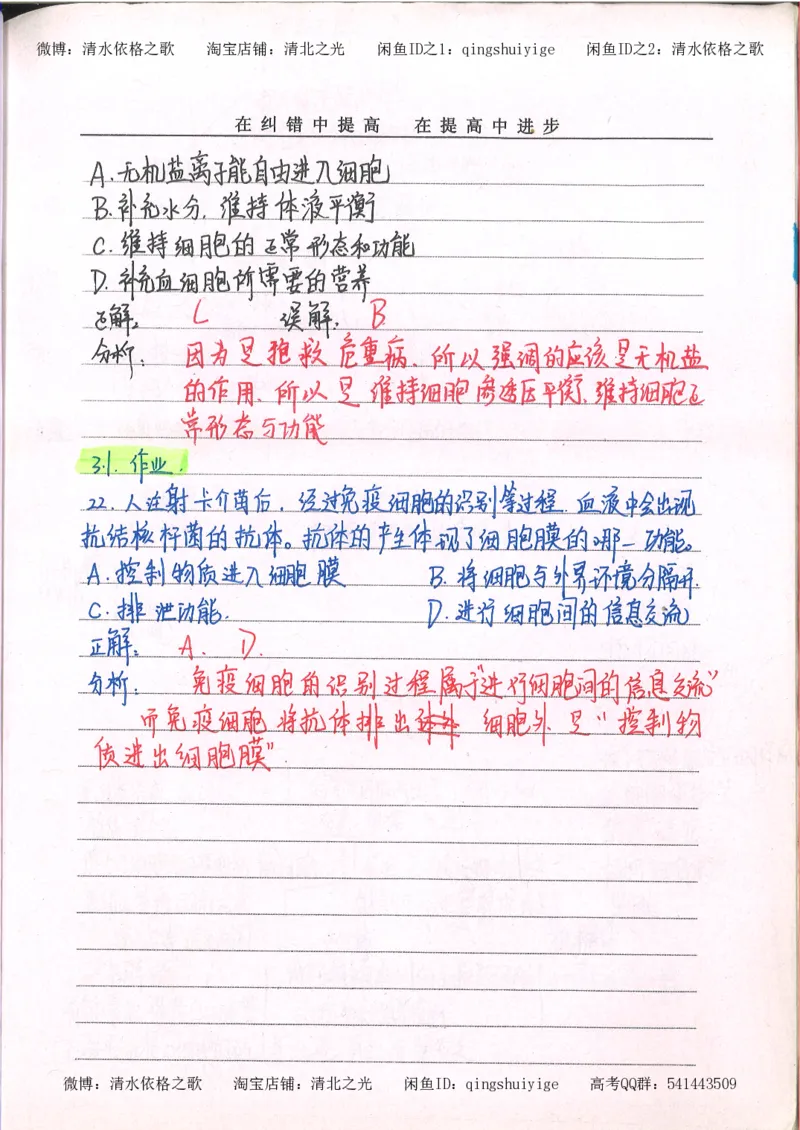 微博：清水依格之歌 淘宝店铺：清北之光 闲鱼ID之1：qingshuiyige 闲鱼ID之2：清水依格之歌
在纠错中提高 在提高中进步
A.无机盐离子能自由进入细胞
B.补充水分，维持体液平衡
C.维持细胞的正常形态和功能
D.补充血细胞所需要的营养
正解： C 误解： B
分析： 因为是抢救危重病、所以强调的应该是无机盐
的作用、所以是维持细胞渗透压平衡、维持细胞正
常形态与功能
31. 作业.
22.人注射卡介苗后，经过免疫细胞的识别等过程，血液中会出现
抗结核杆菌的抗体。抗体的产生体现了细胞膜的哪一功能。
A.控制物质进入细胞膜 B.将细胞与外界环境分隔开.
C.排泄功能. D.进行细胞间的信息交流
正解： A. D.
分析： 免疫细胞的识别过程属于“进行细胞间的信息交流”
而免疫细胞将抗体排出 细胞外是“控制物
质进出细胞膜”.
微博：清水依格之歌 淘宝店铺：清北之光 闲鱼ID：qingshuiyige 高考QQ群：541443509